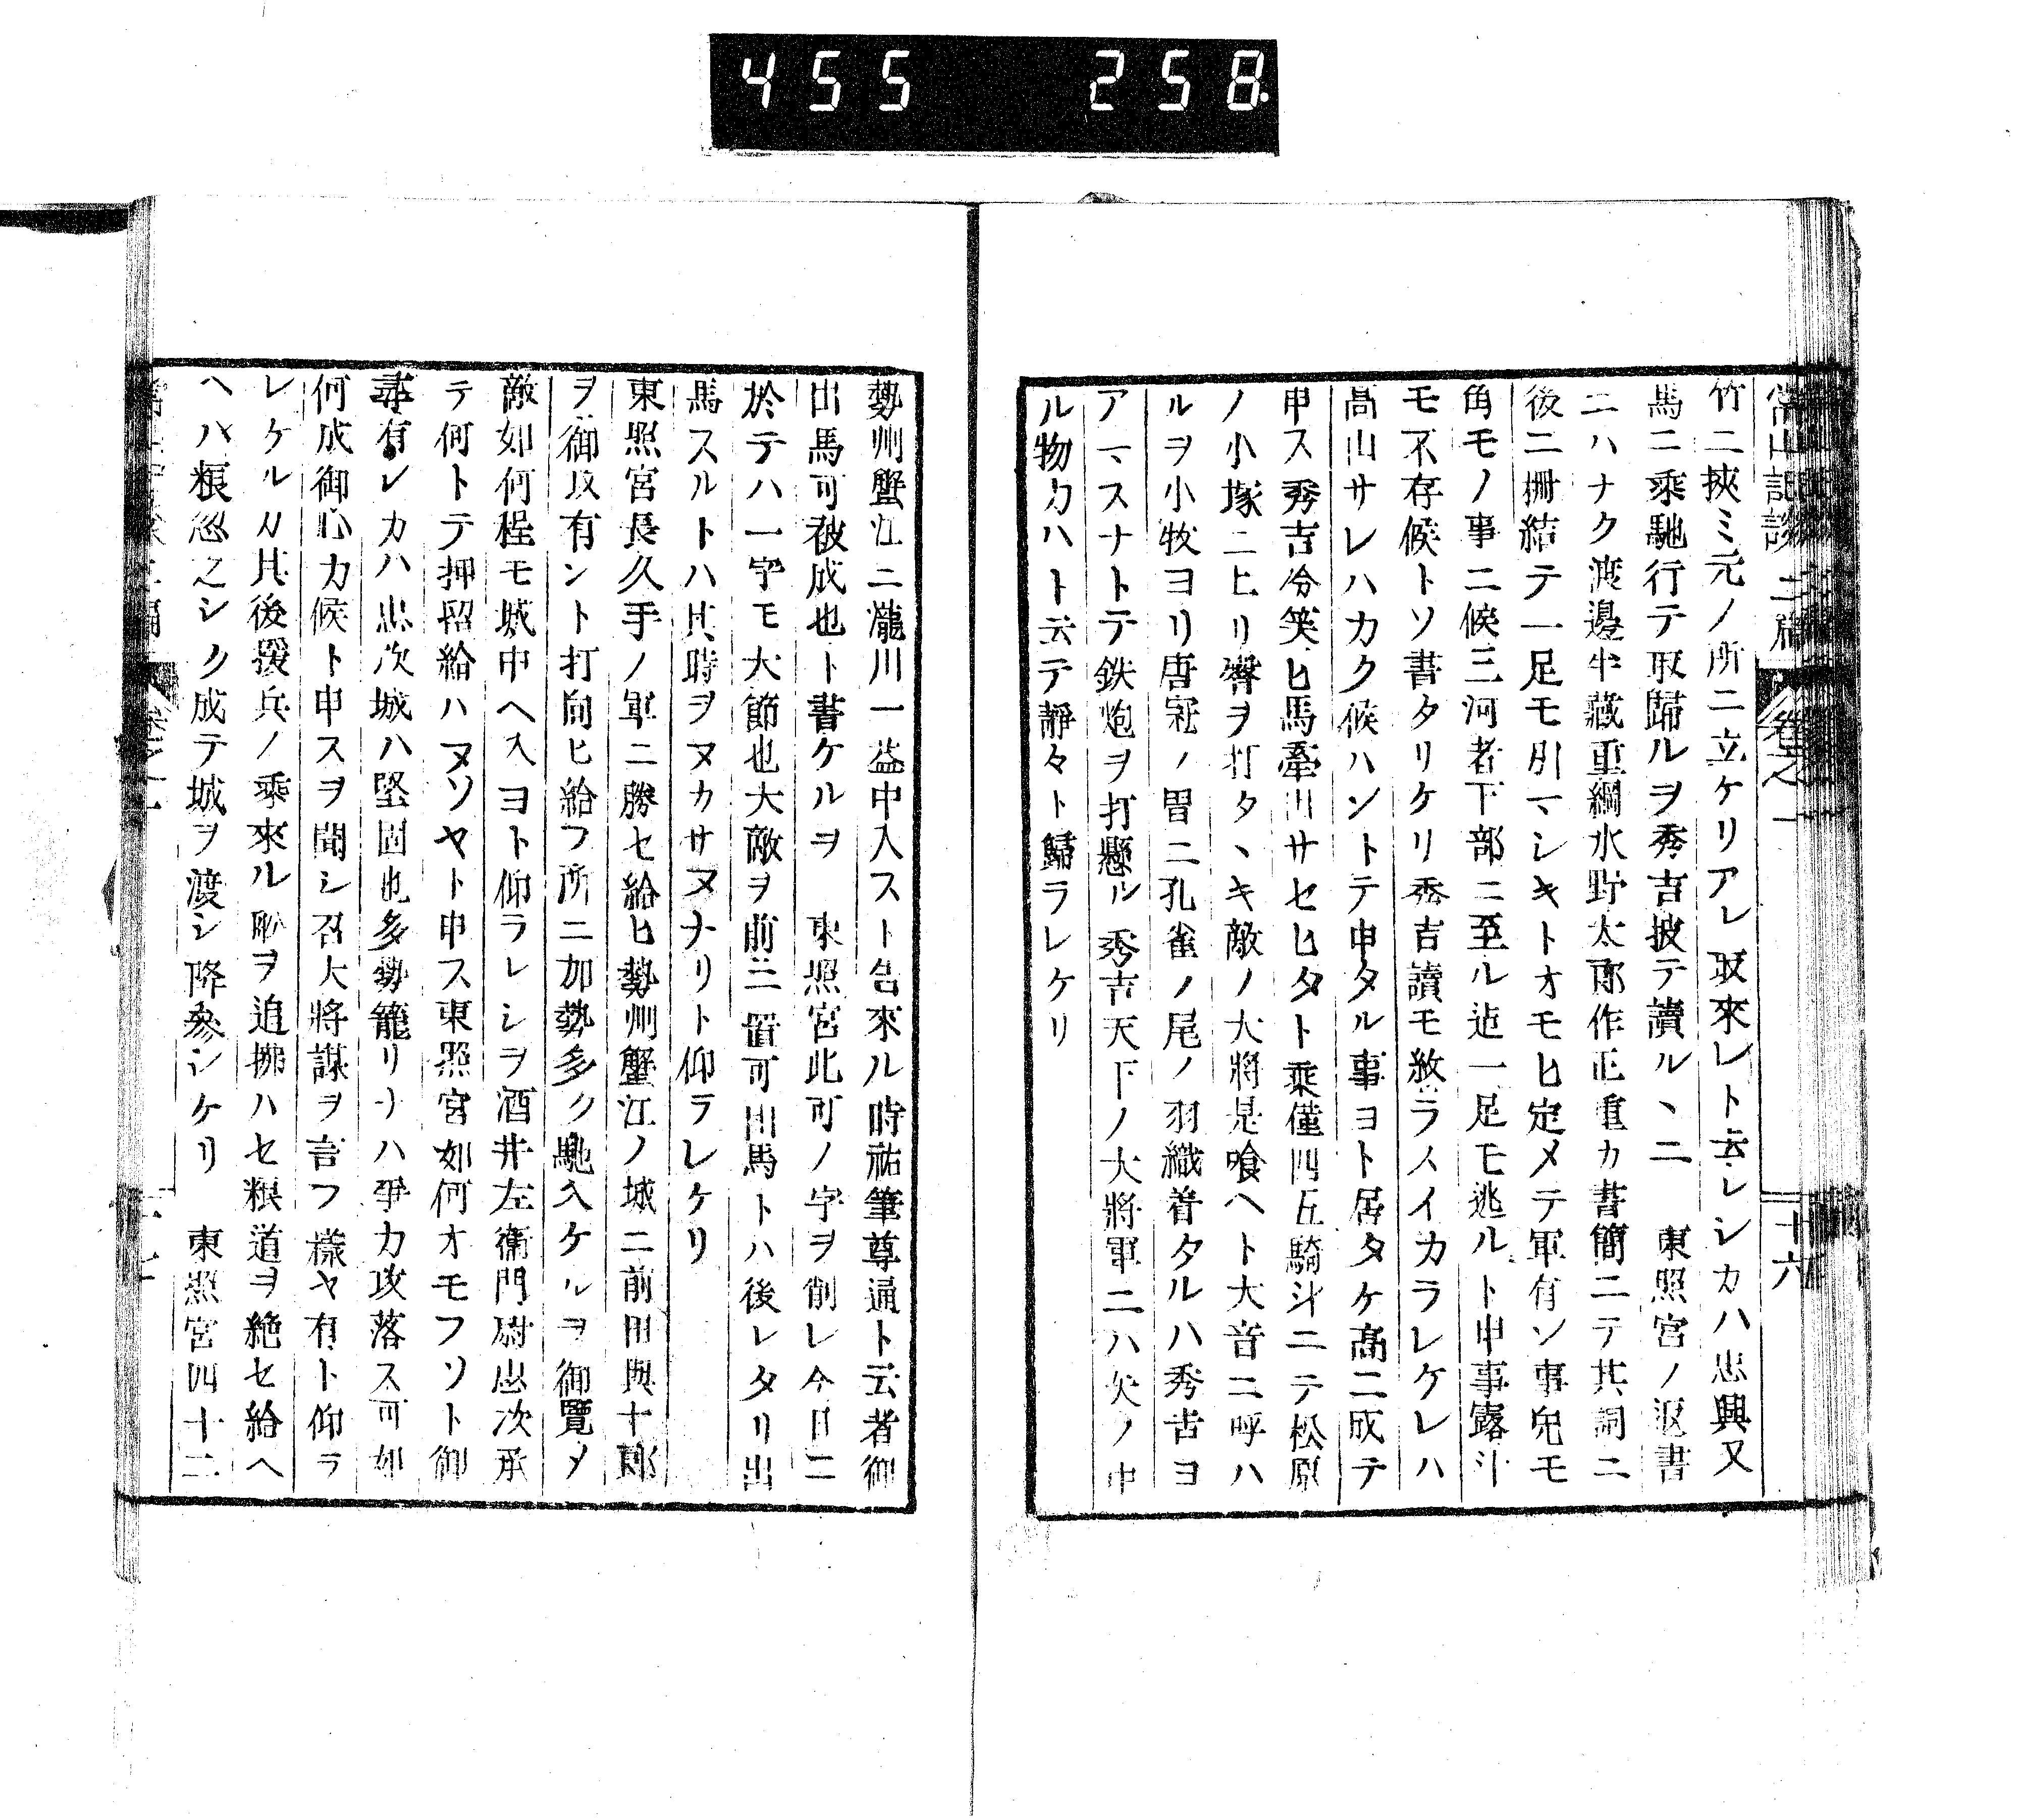 455 258
常山記談 二扁 卷之一 十六
竹ニ挾ミ元ノ所ニ立ケリアレ取來レト云レシカハ忠興又
馬ニ乘馳行テ取歸ルヲ秀吉披テ讀ル丶ニ 東照宮ノ返書
ニハナク渡邊半藏重綱水野太郎作正重カ書簡ニテ其詞ニ
後ニ柵結テ一足モ引マシキトオモヒ定メテ軍有ソ事兒モ
角モノ事ニ候三河者下部ニ至ル迠一足モ逃ルト申事露斗
モ不存候トソ書タリケリ秀吉讀モ敢ラスイカラレケレハ
髙山サレハカク候ハントテ申タル事ヨト居タケ髙ニ成テ
申ス秀吉冷笑ヒ馬牽出サセヒタト乘僅四五騎斗ニテ松原
ノ小塚ニ上リ響ヲ打タヽキ敵ノ大將是喰ヘト大音ニ呼ハ
ルヲ小牧ヨリ唐冠ノ冑ニ孔雀ノ尾ノ羽織着タルハ秀吉ヨ
アマスナトテ鉄炮ヲ打懸ル秀吉天下ノ大將軍ニハ矢ノ中
ル物カハト云テ靜々ト歸ラレケリ
勢州蟹江ニ瀧川一益中入スト告來ル時祐筆尊通ト云者御
出馬可被成也ト書ケルヲ 東照宮此可ノ字ヲ削レ今日ニ
於テハ一字モ大節也大敵ヲ前ニ置可出馬トハ後レタリ出
馬スルトハ其時ヲヌカサヌナリト仰ラレケリ
東照宮長久手ノ軍ニ勝セ給ヒ勢州蟹江ノ城ニ前田與十郎
ヲ御攻有ント打向ヒ給フ所ニ加勢多ク馳入ケルヲ御覽メ
敵如何程モ城中ヘ入ヨト仰ラレシヲ酒井左衞門尉忠次承
テ何トテ押留給ハヌソヤト申ス東照宮如何オモフソト御
尋有レカハ忠次城ハ堅固也多勢籠リナハ爭カ攻落ス可如
何成御心カ候ト申スヲ聞シ召大將謀ヲ言フ樣ヤ有ト仰ラ
レケルカ其後援兵ノ乘來ル船ヲ追拂ハセ粮道ヲ絶セ給ヘ
ヘハ粮忽乏シク成テ城ヲ渡シ降參シケリ 東照宮四十二